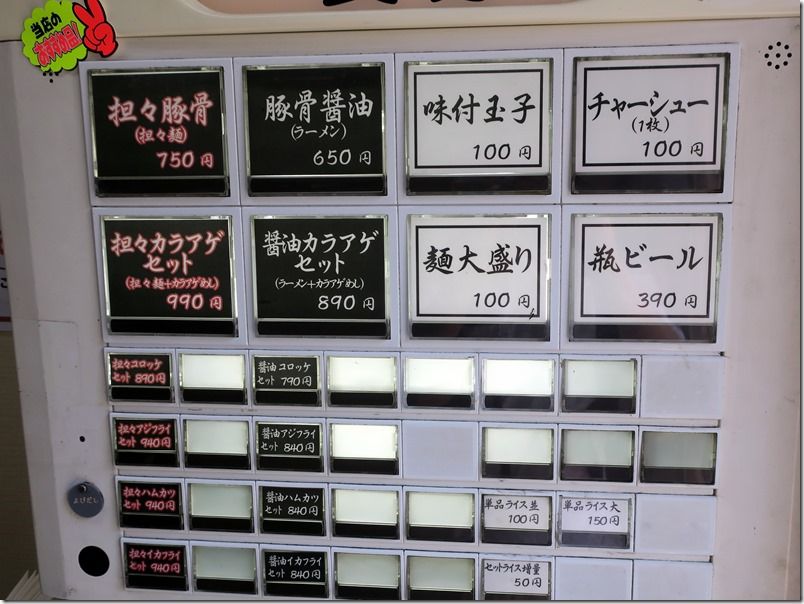 当店の
おすすめ品!
担々豚骨
(担々麺)
750円
豚骨醤油
(ラーメン)
650円
味付玉子
100円
チャーシュー
(1枚)
100円
担々カラアゲ
セット
(担々麺+カラアゲめし)
990円
醤油カラアゲ
セット
(ラーメン+カラアゲめし)
890円
麺大盛り
100円
瓶ビール
390円
担々コロッケ
セット 890円
醤油コロッケ
セット 790円
担々アジフライ
セット 940円
醤油アジフライ
セット 840円
担々ハムカツ
セット 940円
醤油ハムカツ
セット 840円
単品ライス並
100円
単品ライス大
150円
よびだし
担々イカフライ
セット 940円
醤油イカフライ
セット 840円
セットライス増量
50円